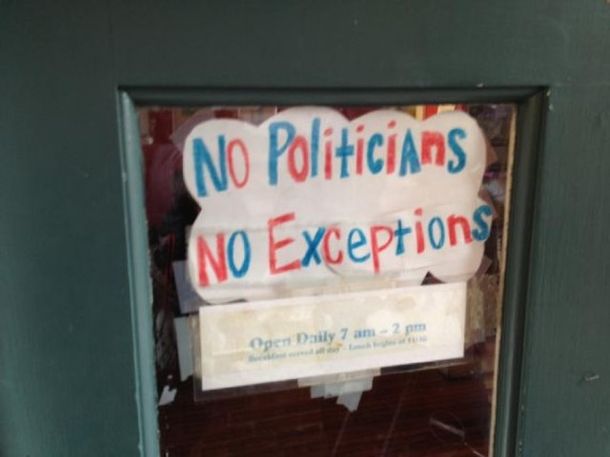 No Politicians
No Exceptions
Open Daily 7 am - 2 pm
Breakfast served all day - Lunch begins at 11:30